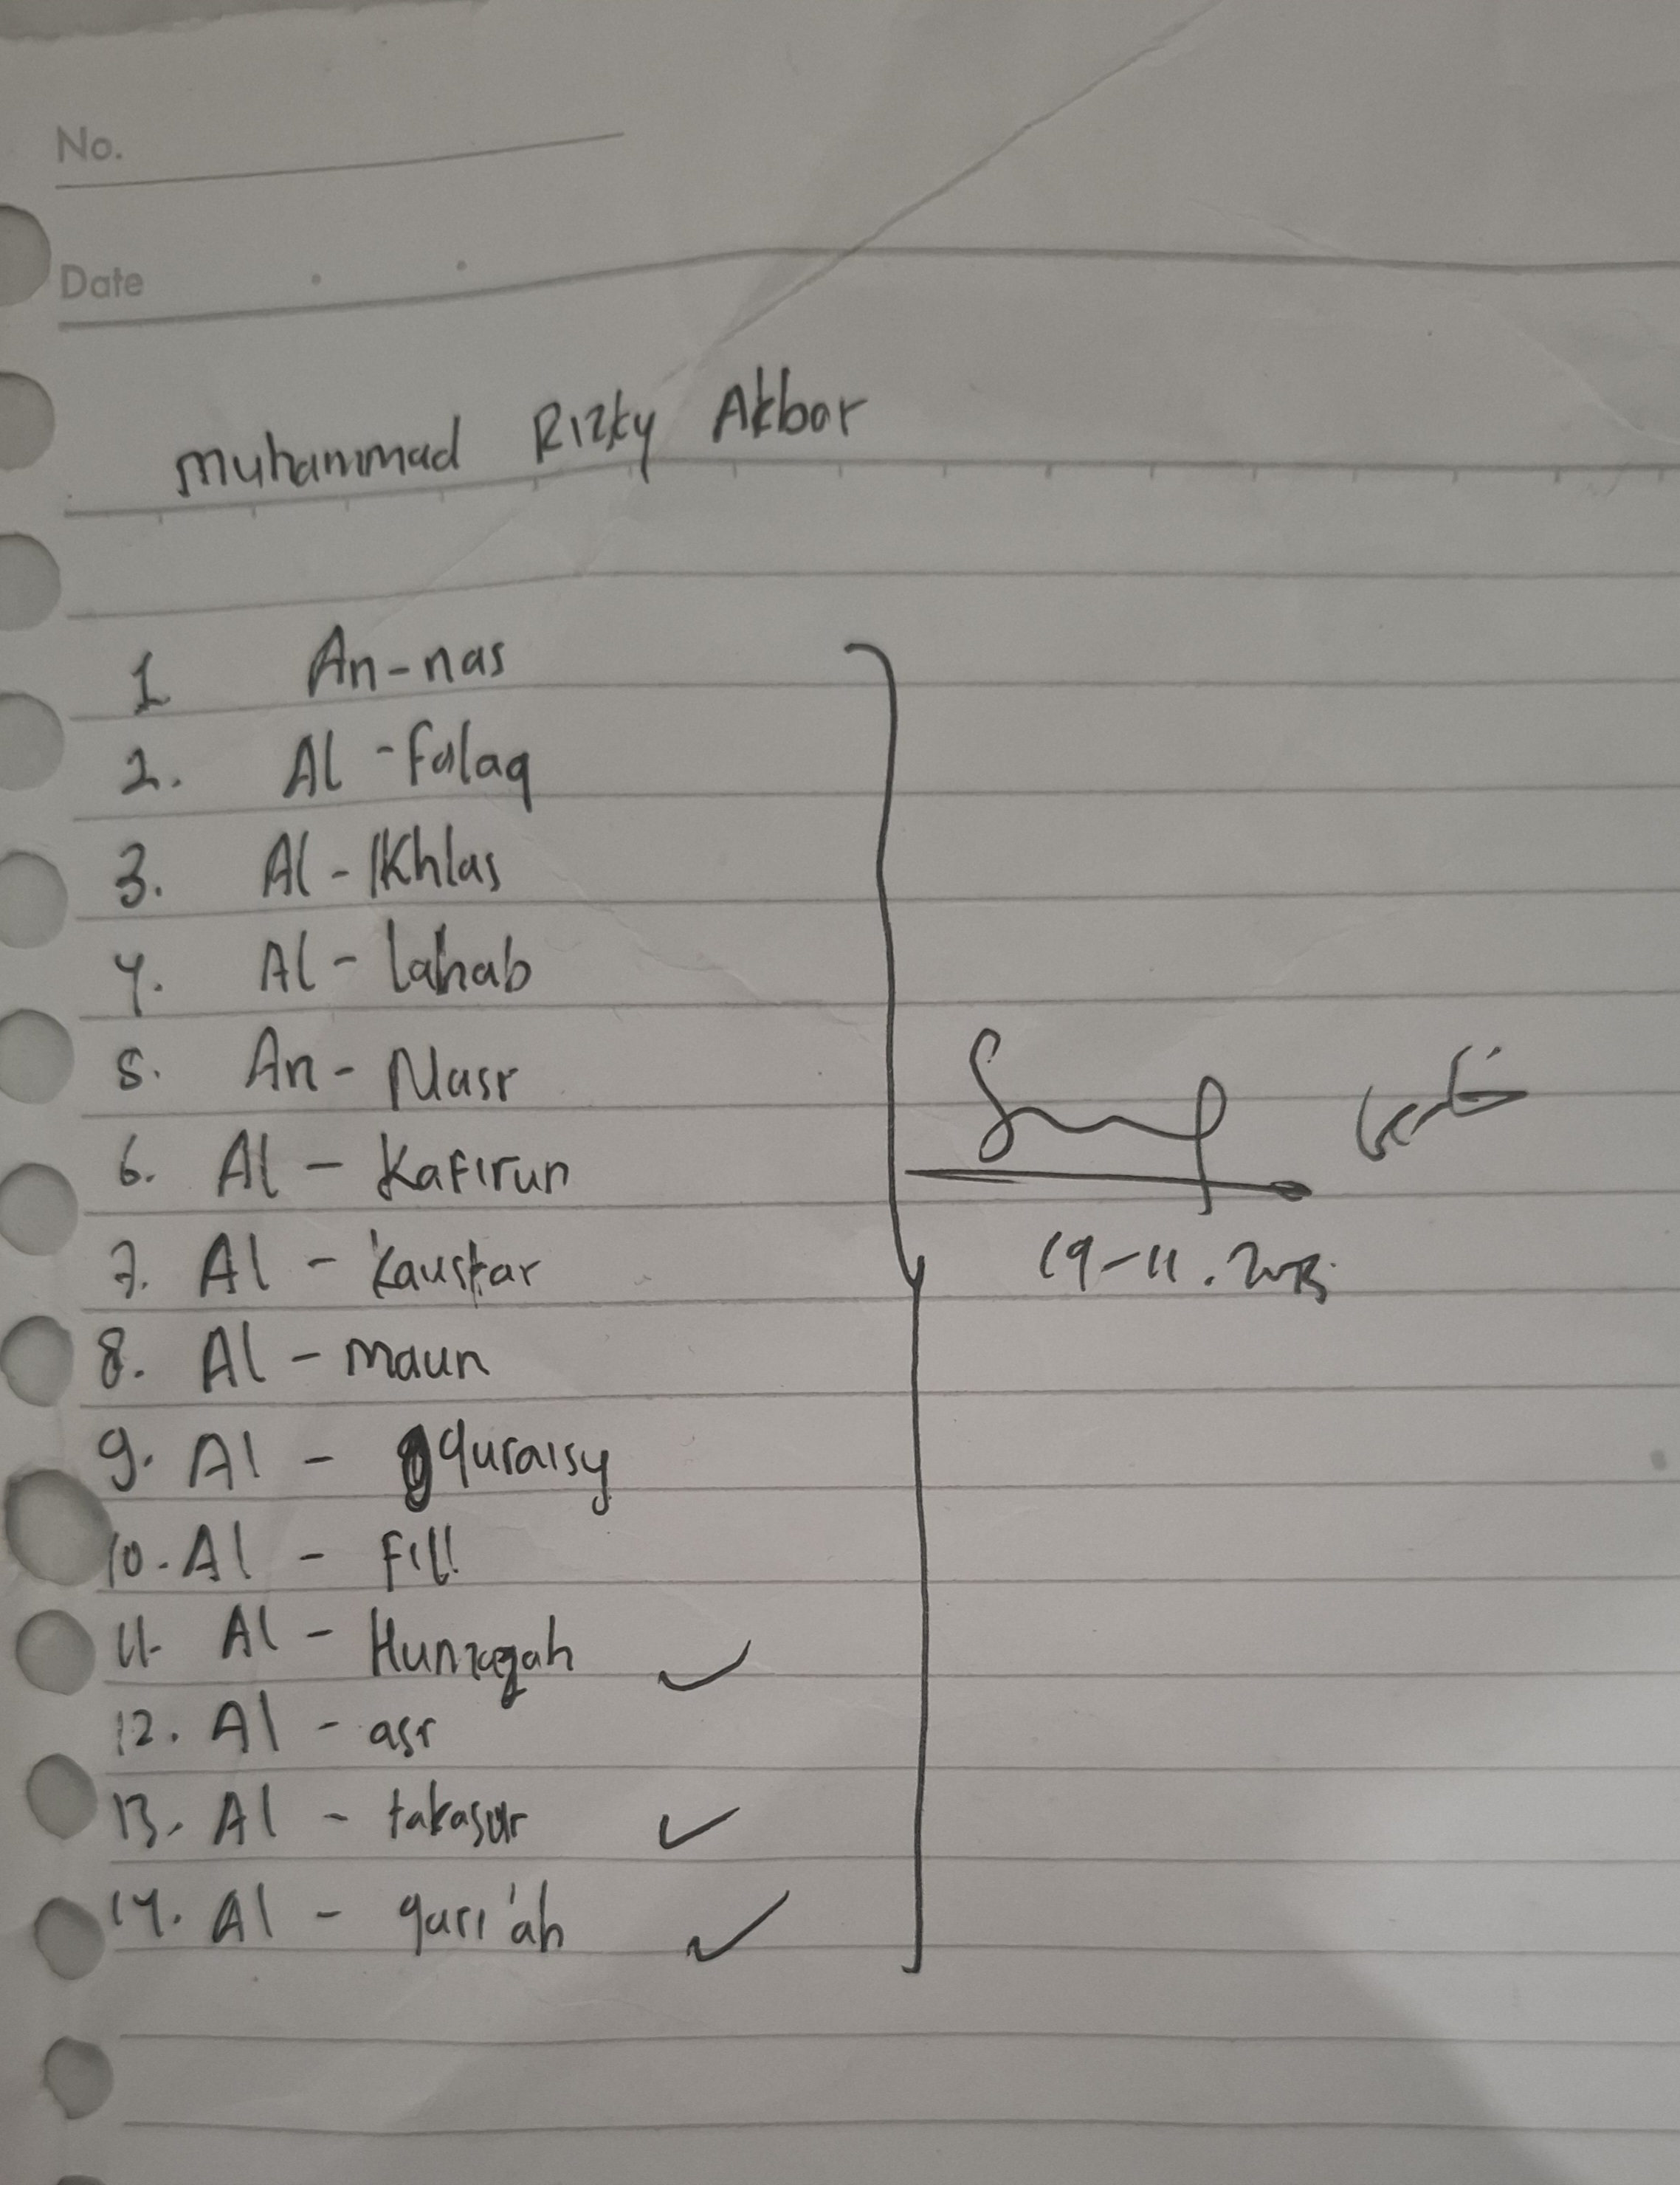 No.
Date
Muhammad Rizky Akbar
1 An-nas
2. Al - Falaq
3. Al - Ikhlas
4. Al - lahab
5. An - Nasr
6. Al - Kafirun
7. Al - Kaustar
8. Al - maun
9. Al - quraisy
10. Al - Fill
11. Al - Humazah
12. Al - asr
13. Al - takasur
14. Al - qari'ah
19-11.